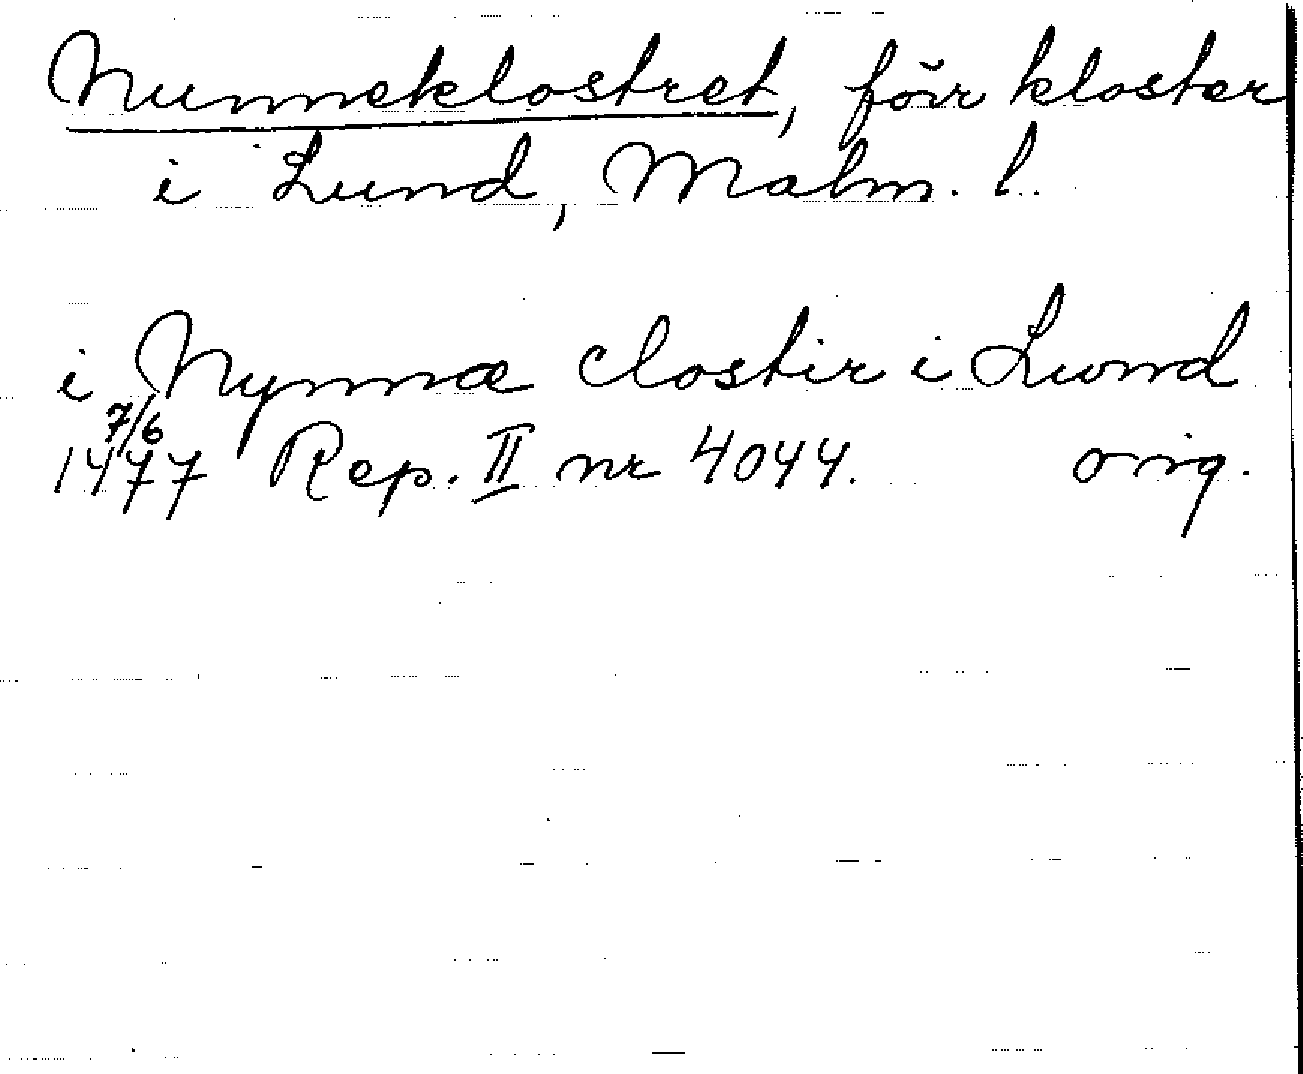 Nunneklostret, förr kloster
i Lund, Malm. l.
i Nynnæ closter i Lund
7/6
1477 Rep. II nr 4044. orig.